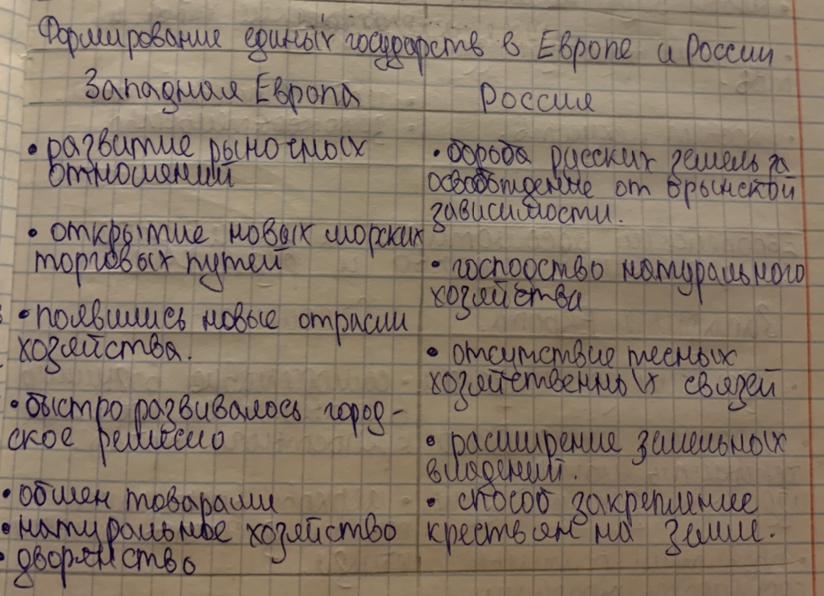 Формирование единых государств в Европе и России
Западная Европа
• развитие рыночных
отношений
• открытие новых морских
торговых путей
• появились новые отрасли
хозяйства.
• быстро развивалось город-
ское ремесло
• обмен товарами
• натуральное хозяйство
• дворянство
Россия
• борьба русских земель за
освобождение от орынской
зависимости.
• господство натурального
хозяйства
• отсутствие тесных
хозяйственных связей
• расширение земельных
владений.
• способ закрепление
крестьян на земле.